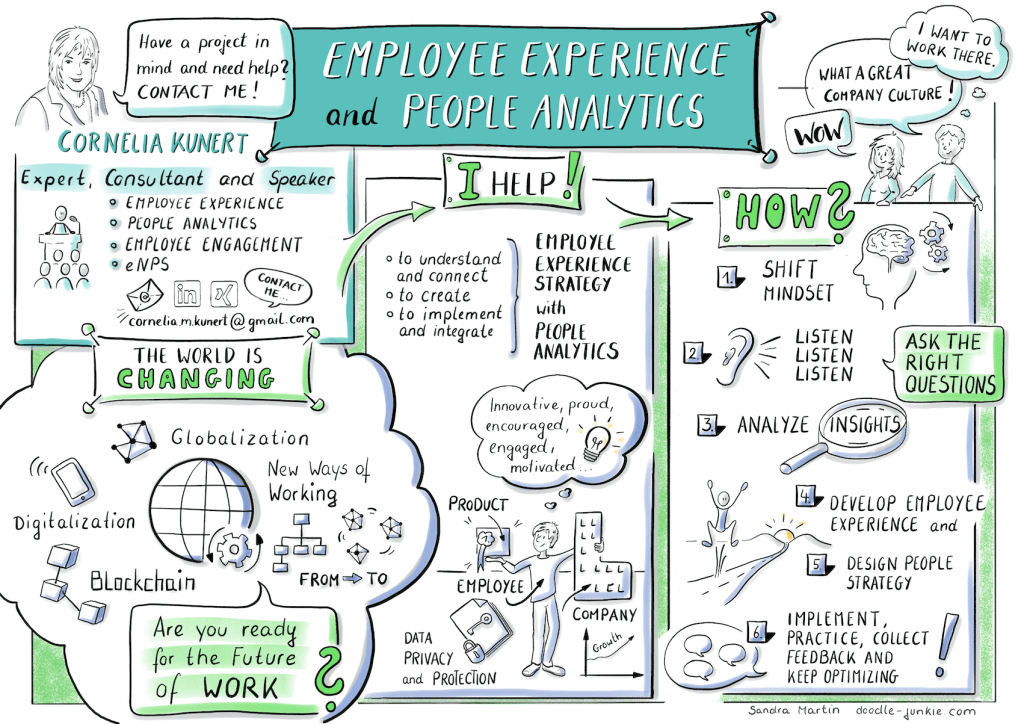 Have a project in
mind and need help?
CONTACT ME!
EMPLOYEE EXPERIENCE
and PEOPLE ANALYTICS
I WANT TO
WORK THERE.
WHAT A GREAT
COMPANY CULTURE!
WOW
CORNELIA KUNERT
Expert, Consultant and Speaker
EMPLOYEE EXPERIENCE
PEOPLE ANALYTICS
EMPLOYEE ENGAGEMENT
eNPS
in
CONTACT
ME...
cornelia.m.kunert@gmail.com
THE WORLD IS
CHANGING
Globalization
New Ways of
Working
Digitalization
Blockchain
FROM → TO
Are you ready
for the Future
of WORK ?
I HELP!
to understand
and connect
to create
to implement
and integrate
EMPLOYEE
EXPERIENCE
STRATEGY
with
PEOPLE
ANALYTICS
Innovative, proud,
encouraged,
engaged,
motivated...
PRODUCT
EMPLOYEE
COMPANY
DATA
PRIVACY
and PROTECTION
Growth
HOW?
1. SHIFT
MINDSET
2 LISTEN
LISTEN
LISTEN
ASK THE
RIGHT
QUESTIONS
3. ANALYZE INSIGHTS
4. DEVELOP EMPLOYEE
EXPERIENCE and
5 DESIGN PEOPLE
STRATEGY
6. IMPLEMENT,
PRACTICE, COLLECT
FEEDBACK AND
KEEP OPTIMIZING !
Sandra Martin doodle-junkie.com